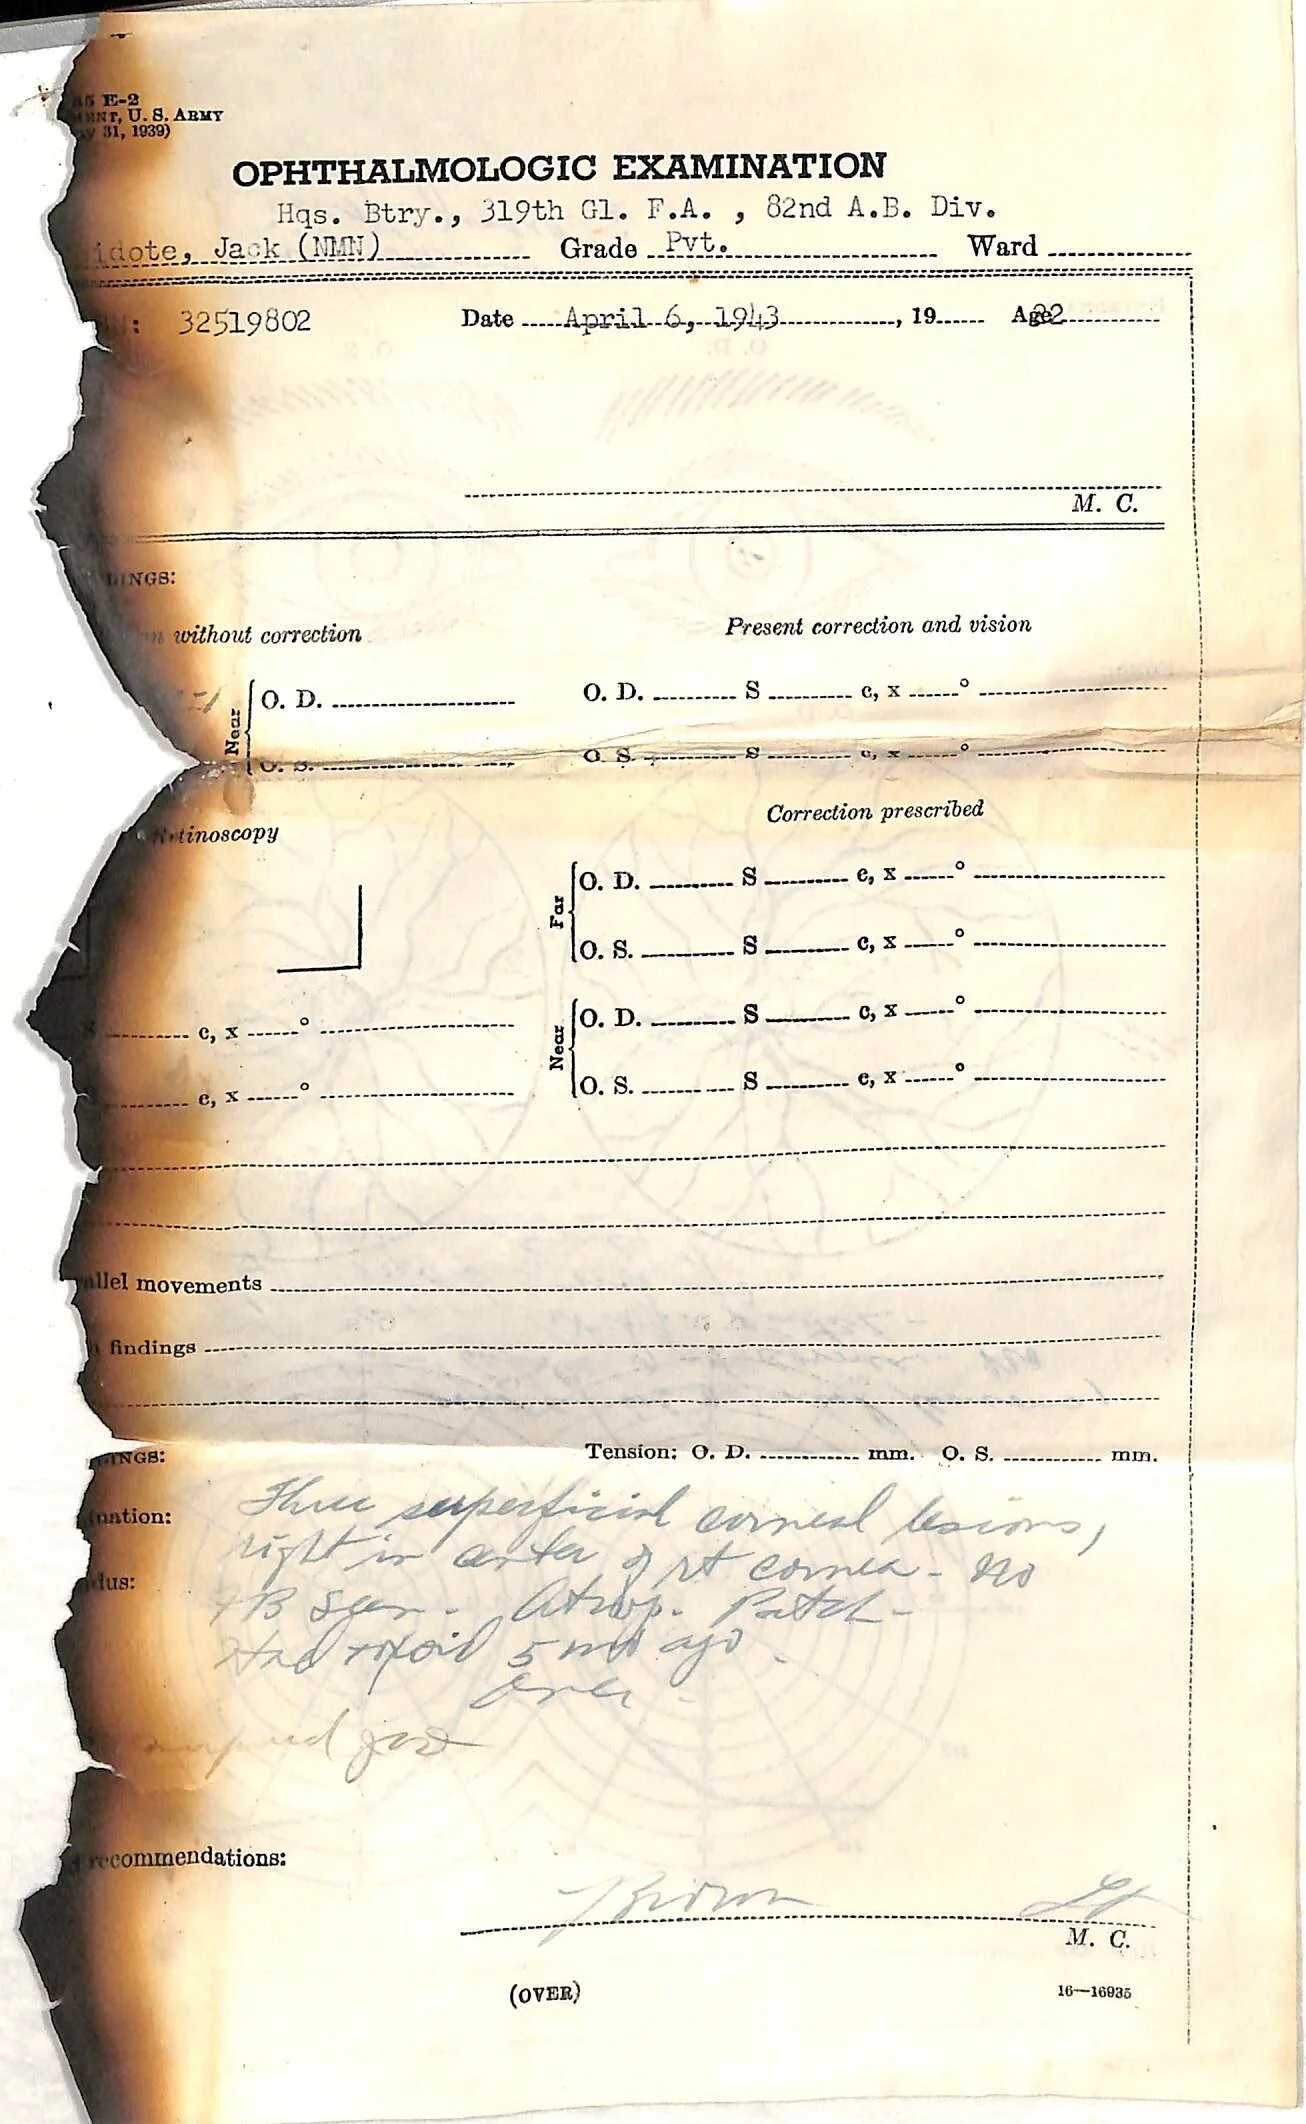 E-2
U. S. ARMY
31, 1939)
OPHTHALMOLOGIC EXAMINATION
Hqs. Btry., 319th Gl. F.A. , 82nd A.B. Div.
idote, Jack (NMN) Grade Pvt. Ward
: 32519802 Date April 6, 1943, 19 Age 22
M. C.
DINGS:
without correction Present correction and vision
Near O. D. O. D. S c, x °
O. S. O. S. S c, x °
tinoscopy Correction prescribed
Far O. D. S c, x °
O. S. S c, x °
S c, x ° Near O. D. S c, x °
c, x ° O. S. S c, x °
allel movements
findings
INGS: Tension: O. D. mm. O. S. mm.
nation: Three superficial corneal lesions,
right in center of rt cornea - No
dus: FB seen. Atrop. Patch -
Had 5 ago
Over -
recommendations:
Brown Lt
M. C.
(OVER) 16—16935